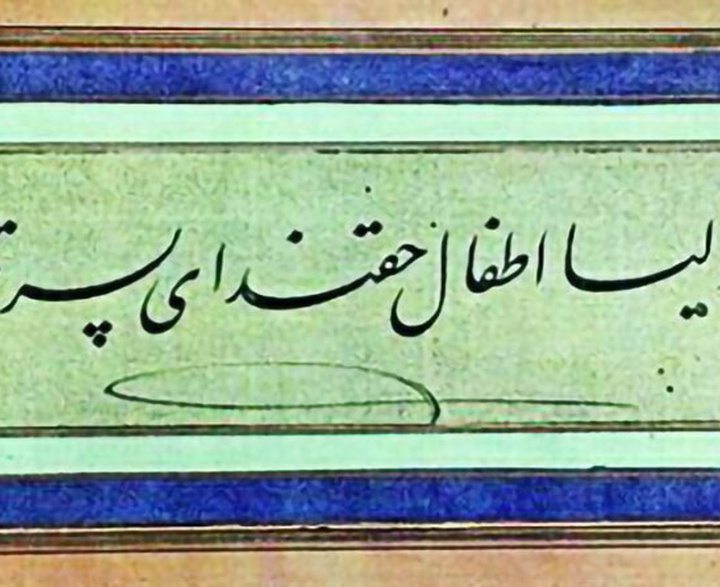 لیا اطفال حقند ای پسر